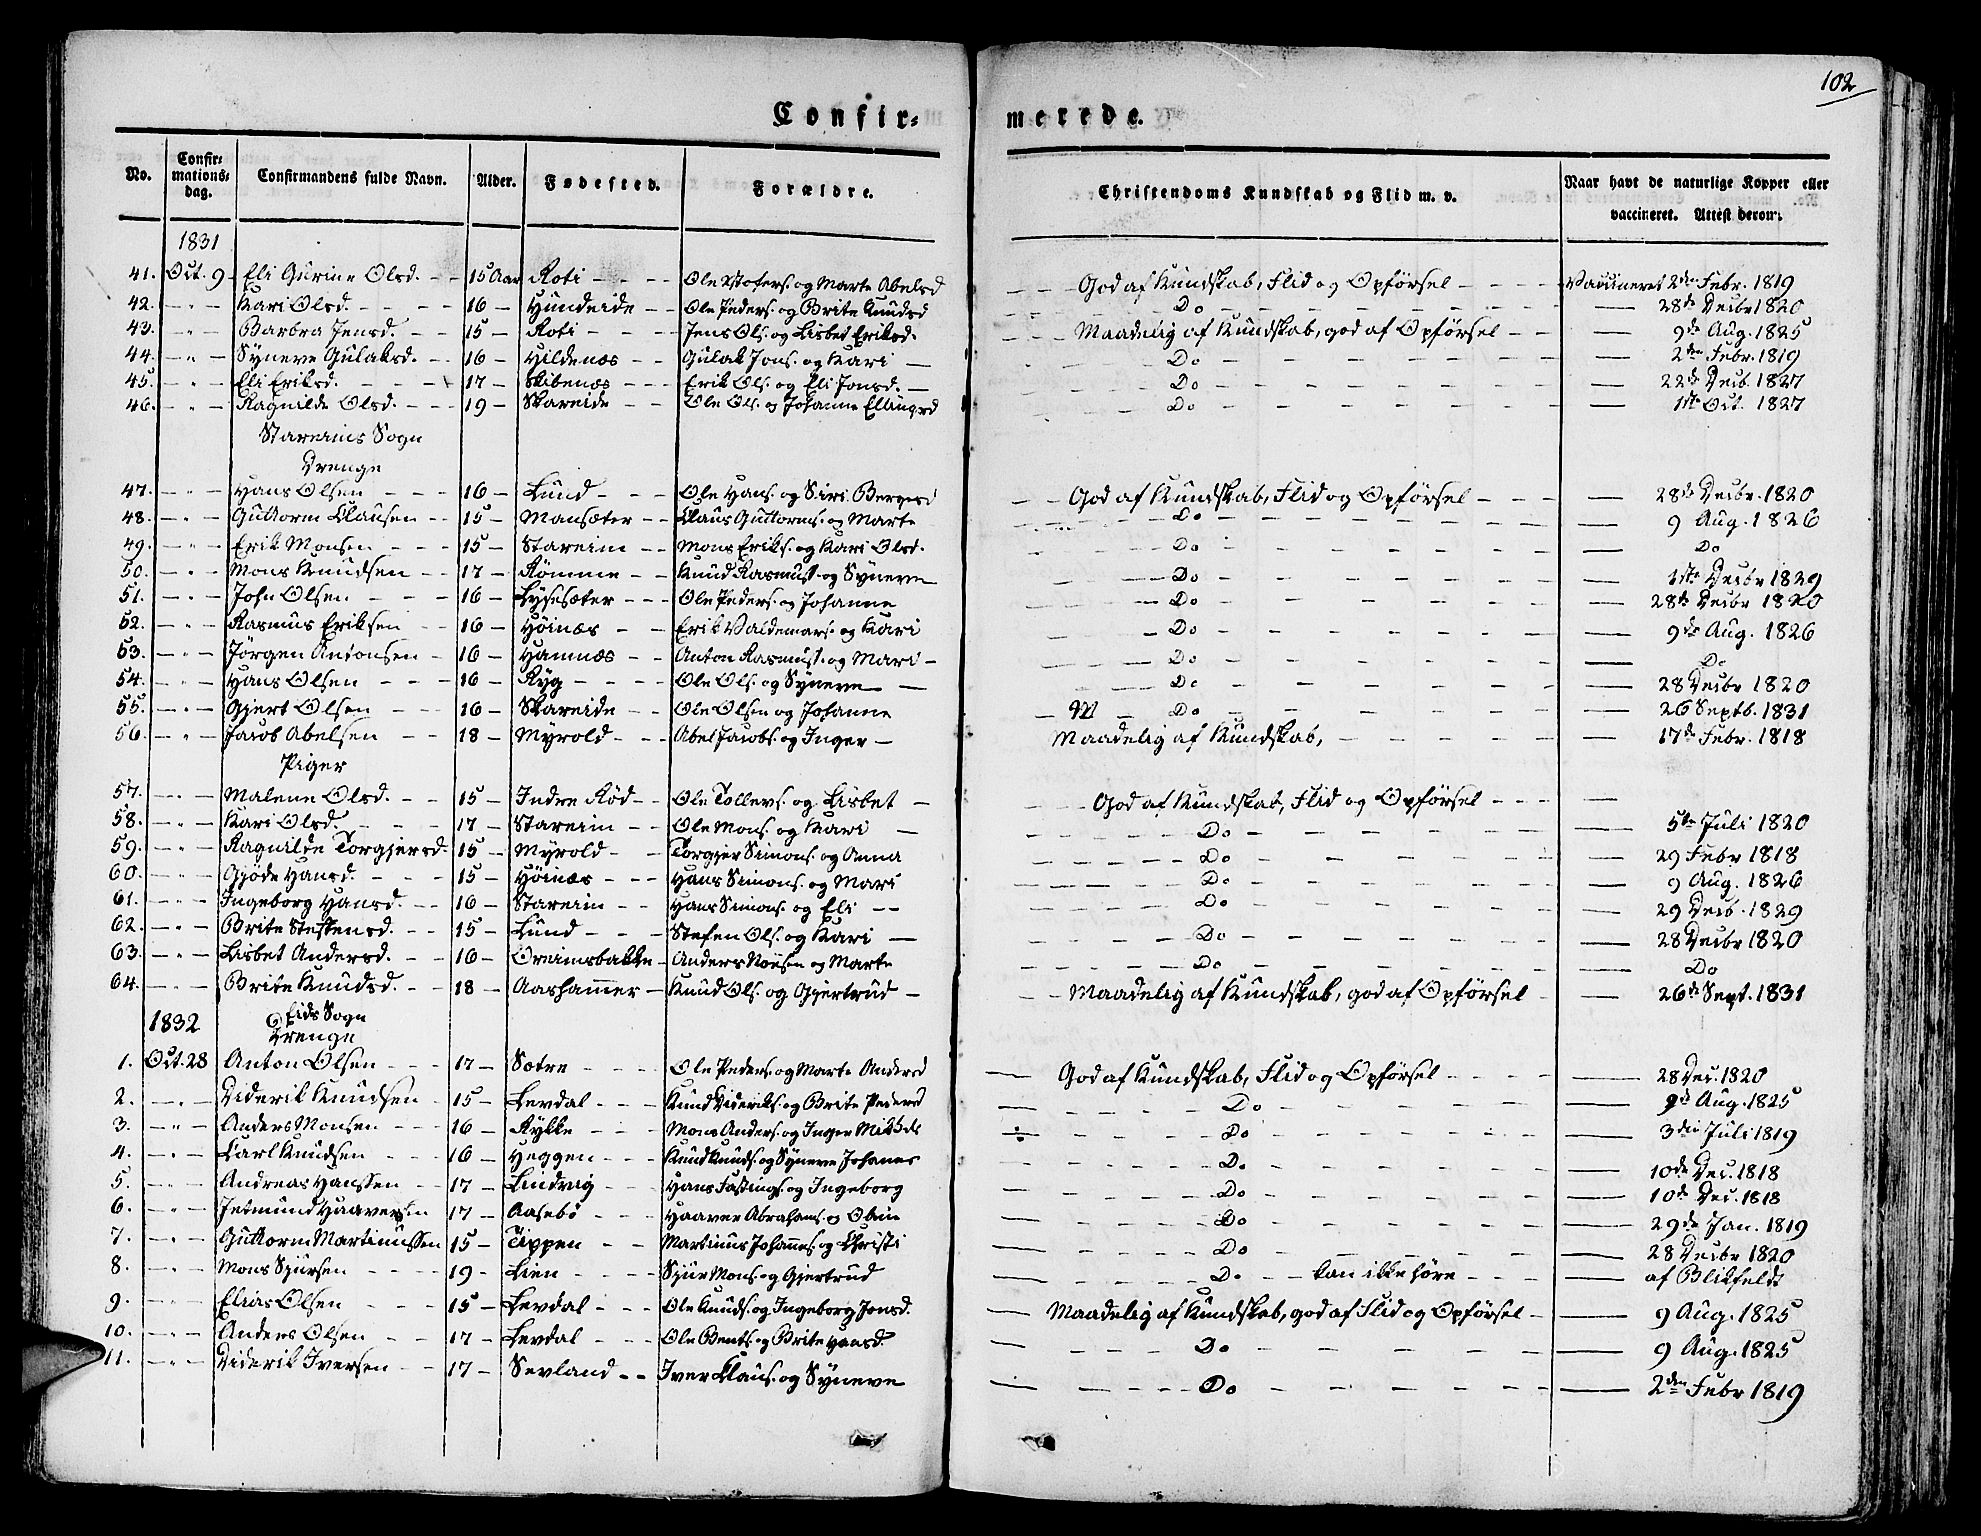 102
Confirmerede.
No. Confirmationsdag. Confirmandens fulde Navn. Alder. Fødested. Forældre. Christendoms Kundskab og Flid m. v. Naar havt de naturlige Kopper eller vaccineret. Attest derom.
1831
41. Oct. 9 Eli Gurine Olsd. 15 Aar Roti Ole Marte Abelsd God af Kundskab, Flid og Opførsel Vaccineret 2den Febr. 1819
42. " Kari Olsd. 16 Hundeide Ole Peders. og Brite Knudsd Do 28de Decbr 1820
43. " Barbra Jensd. 15 Roti Jens Ols. og Lisbet Eriksd. Maadelig af Kundskab, god af Opførsel 9de Aug. 1825
44. " Synneve Gulaksd. 16 Hildenæs Gulak Jons. og Kari Do 2den Febr. 1819
45. " Eli Eriksd. 17 Skibenæs Erik Ols. og Eli Jonsd. Do 22de Decb. 1827
46. " Ragnilde Olsd. 19 Skareide Ole Ols. og Johanne Ellingsd Do 1ste Oct. 1827
Stareims Sogn
Drenge
47. " Hans Olsen 16 Lund Ole Hans. og Siri God af Kundskab, Flid og Opførsel 28de Decbr. 1820
48. " Guttorm Clausen 15 Mansæter Claus Guttorms. og Marte Do 9 Aug. 1826
49. " Erik Monsen 15 Stareim Mons Eriks. og Kari Olsd. Do Do
50. " Mons Knudsen 17 Rømme Knud Rasmus. og Synneve Do 1ste Decbr 1829
51. " John Olsen 16 Lysesæter Ole Peders. og Johanne Do 28de Decbr 1820
52. " Rasmus Eriksen 16 Høinæs Erik Valdemars. og Kari Do 9de Aug. 1826
53. " Jørgen Antonsen 16 Hamnæs Anton Rasmus. og Mari Do Do
54. " Hans Olsen 16 Ryg Ole Ols. og Synneve Do 28 Decbr 1820
55. " Gjert Olsen 16 Skareide Ole Olsen og Johanne Do 26 Septb. 1831
56. " Jacob Abelsen 18 Myrold Abel Jacobs. og Inger Maadelig af Kundskab, 17de Febr. 1818
Piger
57. " Malene Olsd. 15 Indre Rød Ole Tollevs. og Lisbet God af Kundskab, Flid og Opførsel
58. " Kari Olsd. 17 Stareim Ole Mons. og Kari Do 5te Juli 1820
59. " Ragnilde Torgjersd. 15 Myrold Torgjer Simons. og Anna Do 29 Febr 1818
60. " Gjøde Hansd. 15 Høinæs Hans Simons. og Mari Do 9 Aug. 1826
61. " Ingeborg Hansd. 16 Stareim Hans Simons. og Eli Do 29 Decb. 1829
62. " Brite Steffensd. 15 Lund Stefen Ols. og Kari Do 28 Decbr 1820
63. " Lisbet Andersd. 16 Oreimsbakke Anders og Marte Do Do
64. " Brite Knudsd. 18 Aashammer Knud Ols. og Gjertrud Maadelig af Kundskab, god af Opførsel 26de Sept. 1831
1832 Eids Sogn
Drenge
1. Oct. 28 Anton Olsen 17 Sætre Ole Peders. og Marte Andersd God af Kundskab, Flid og Opførsel 28 Dec. 1820
2. " Diderik Knudsen 15 Levdal Knud Dideriks. og Brite Pedersd Do 9de Aug. 1825
3. " Anders Monsen 16 Rykke Mons Anders. og Inger Do 3die Juli 1819
4. " Carl Knudsen 16 Heggen Knud Knuds. og Synneve Johanes Do 10de Dec. 1818
5. " Andreas Hanssen 17 Lindvig Hans Fastings. og Ingeborg Do 10de Dec. 1818
6. " Jetmund Haaversen 17 Aasebø Haaver Abrahams. og Oline Do 29de Jan. 1819
7. " Guttorm Martinussen 15 Tippen Martinus Johannes. og Christi Do 28 Decbr 1820
8. " Mons Sjursen 19 Lien Sjur Mons. og Gjertrud Do kan ikke høre af Blikfeldt
9. " Elias Olsen 15 Levdal Ole Knuds. og Ingeborg Jonsd. Maadelig af Kundskab, god af Flid og Opførsel 9 Aug. 1825
10. " Anders Olsen 17 Levdal Ole Bents. og Brite Hansd. Do 9 Aug. 1825
11. " Diderik Iversen 17 Sevland Iver Claus. og Synneve Do 2den Febr 1819